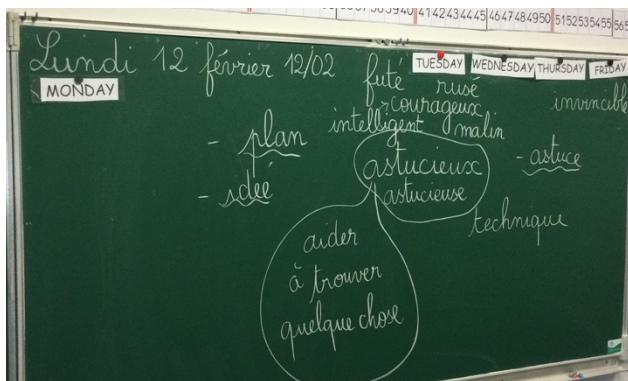 39 40 41 42 43 44 45 46 47 48 49 50 51 52 53 54 55 56
Lundi 12 février 12/02
MONDAY
TUESDAY
WEDNESDAY
THURSDAY
FRIDAY
futé rusé
courageux
invincible
intelligent malin
- plan
astucieux
- astuce
- idée
astucieuse
technique
aider
à trouver
quelque chose